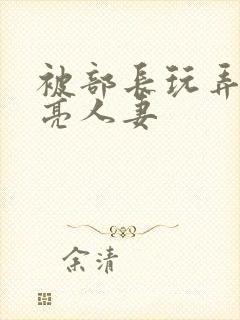 被部長玩弄
亮人妻
余清